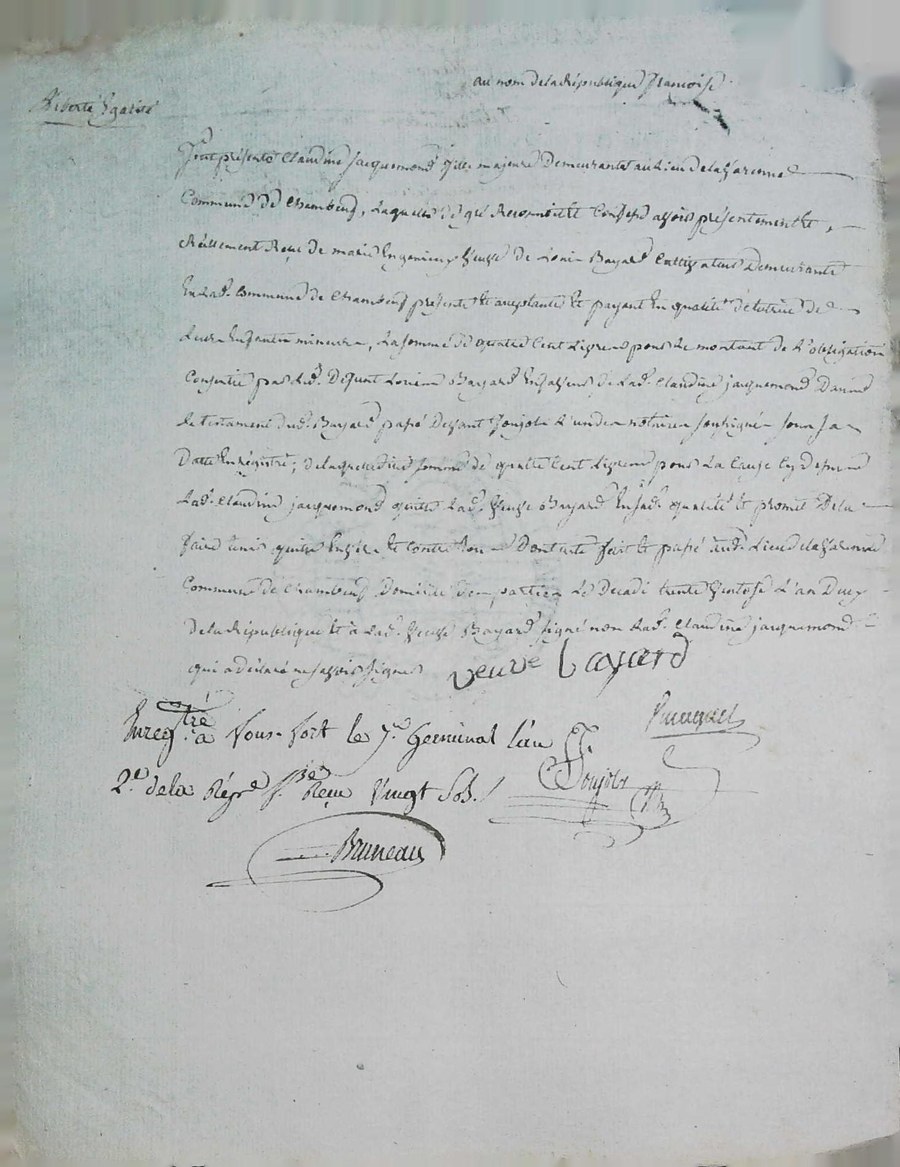 au nom de la République françoise
Liberté Egalité
fut présente Claudine Jacquemond fille majeure demeurante au lieu de la Varenne
Commune de Chambeuf, Laquelle de gré Reconnoitt Confesse avoir présentement &,
Réellement Reçu de marie veuve de Louis Bayard Cultivateur demeurante
En lad. Commune de Chambeuf présente & acceptante & payant En qualité de tutrice de
Leurs Enfants mineurs, La somme de quatre Cent Livres pour Le montant de L'obligation
Consentie par led. Deffunt Louis Bayard En faveur de Lad. Claudine jacquemond Dans
Le testament dud. Bayard passé Devant Joujols L'un des notaires soussignés sous sa
Datte Enregistré; de laquelle somme de quatre Cent Livres pour La Cause Cy dessus
Lad. Claudine jacquemond quitte Lad. Veuve Bayard En sad. qualité & promet De la
faire tenir quitte Envers & contre tous Dont acte fait & passé aud. Lieu de la Varenne
Commune de Chambeuf Domicile des parties Le Decadi trente Ventose L'an Deux
de la République & à Lad. Veuve Bayard signé non Lad. Claudine jacquemond
qui a déclaré ne savoir signer
veuve bayard
Enregtré à Fons-fort le 7. Germinal l'an
2.e de la Répe. f.se Reçu Vingt Sols./
Joujols
Bruneau